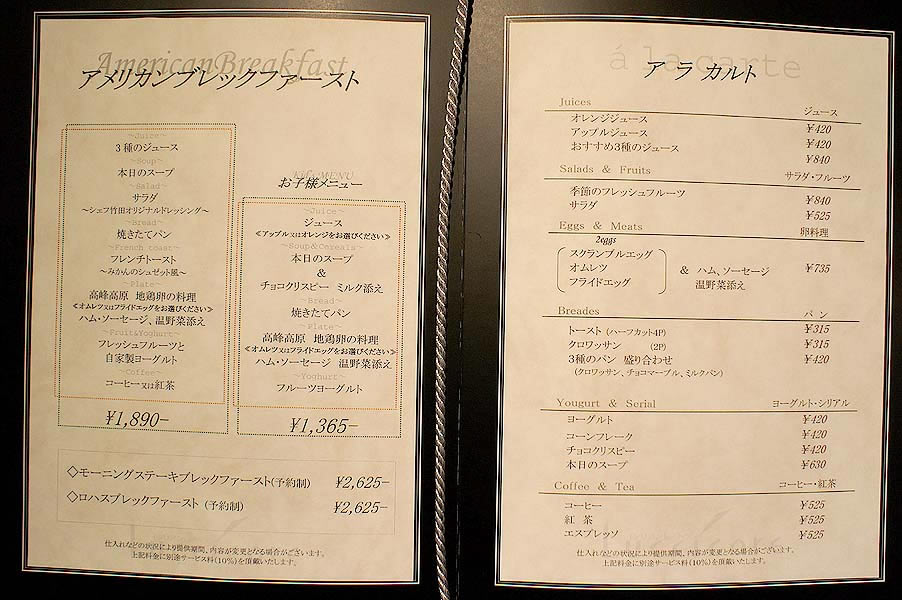 American Breakfast
アメリカンブレックファースト
～Juice～
3種のジュース
～Soup～
本日のスープ
～Salad～
サラダ
～シェフ竹田オリジナルドレッシング～
～Bread～
焼きたてパン
～French toast～
フレンチトースト
～みかんのシュゼット風～
～Plate～
高峰高原 地鶏卵の料理
≪オムレツ又はフライドエッグをお選びください≫
ハム・ソーセージ、温野菜添え
～Fruit&Yoghurt～
フレッシュフルーツと
自家製ヨーグルト
～Coffee～
コーヒー又は紅茶
¥1,890-
お子様メニュー
～Juice～
ジュース
≪アップル又はオレンジをお選びください≫
～Soup&Cereals～
本日のスープ
&
チョコクリスピー ミルク添え
～Bread～
焼きたてパン
～Plate～
高峰高原 地鶏卵の料理
≪オムレツ又はフライドエッグをお選びください≫
ハム・ソーセージ 温野菜添え
～Yoghurt～
フルーツヨーグルト
¥1,365-
◇モーニングステーキブレックファースト(予約制) ¥2,625-
◇ロハスブレックファースト (予約制) ¥2,625-
仕入れなどの状況により提供期間、内容が変更となる場合がございます。
上記料金に別途サービス料(10%)を頂戴いたします。
á la carte
ア ラ カルト
Juices ジュース
オレンジジュース ¥420
アップルジュース ¥420
おすすめ3種のジュース ¥840
Salads & Fruits サラダ・フルーツ
季節のフレッシュフルーツ ¥840
サラダ ¥525
Eggs & Meats 卵料理
2eggs
スクランブルエッグ
オムレツ & ハム、ソーセージ ¥735
フライドエッグ 温野菜添え
Breades パン
トースト (ハーフカット4P) ¥315
クロワッサン (2P) ¥315
3種のパン 盛り合わせ ¥420
(クロワッサン、チョコマーブル、ミルクパン)
Yougurt & Serial ヨーグルト・シリアル
ヨーグルト ¥420
コーンフレーク ¥420
チョコクリスピー ¥420
本日のスープ ¥630
Coffee & Tea コーヒー・紅茶
コーヒー ¥525
紅 茶 ¥525
エスプレッソ ¥525
仕入れなどの状況により提供期間、内容が変更となる場合がございます。
上記料金に別途サービス料(10%)を頂戴いたします。